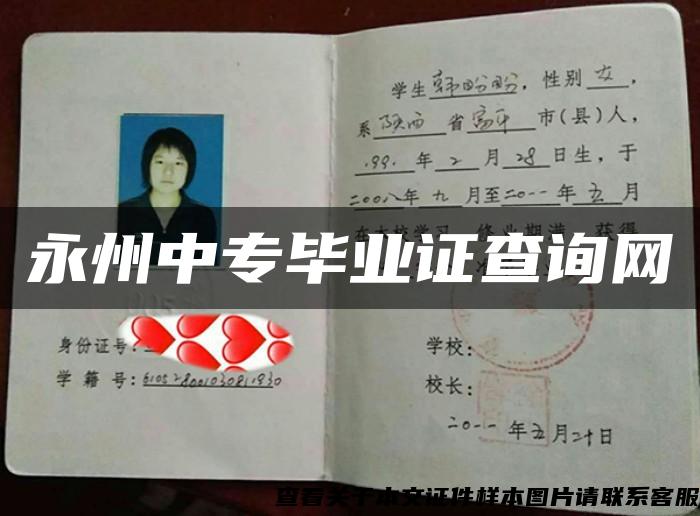 学生韩盼盼,性别女,
系陕西省富平市(县)人,
1991年2月28日生,于
二00八年九月至二0一一年五月
在本校学习 修业期满 获得
永州中专毕业证查询网
身份证号:
学籍号:610528001030811930
学校:
校长:
二0一一年五月二十日
查看关于本文证件样本图片请联系客服